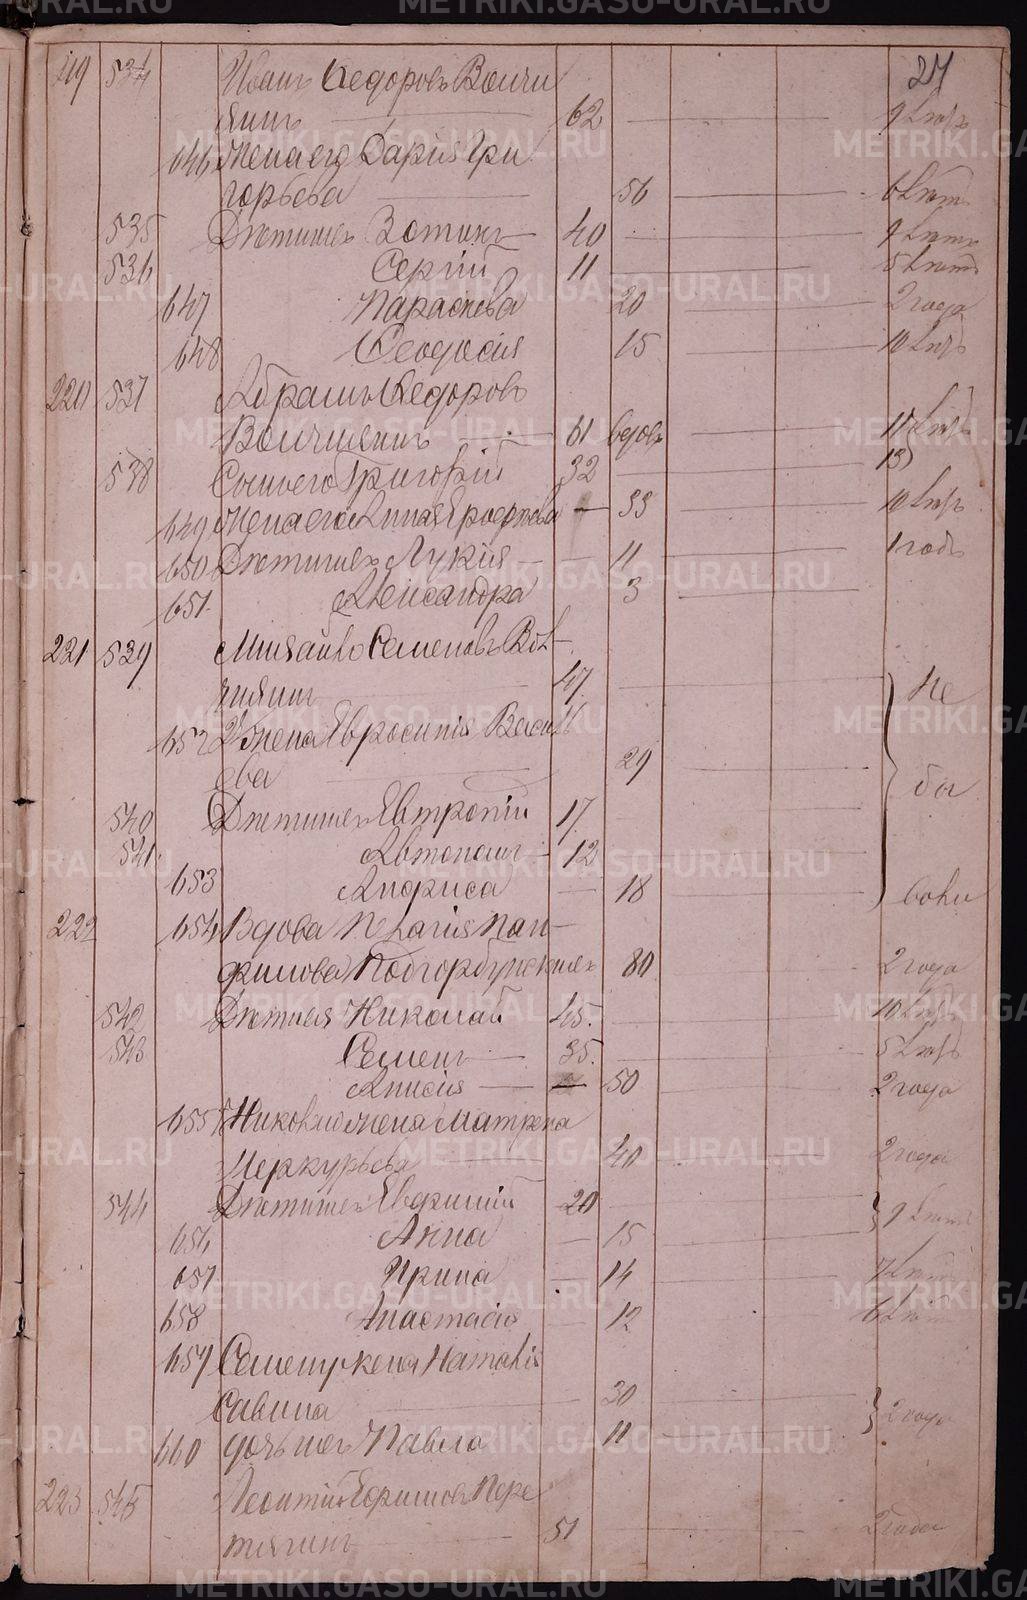 27
219 534 Иванъ Ѳедоровъ Волчи
хинъ 62 9 лѣтъ
646 Жена его Дарія Гри
горьева 56 6 лѣтъ
535 Дѣти ихъ Зотикъ 40 9 лѣтъ
536 Сергій 11 5 лѣтъ
647 Параскева 20 2 года
648 Ѳеодосія 15 10 лѣтъ
220 537 Абрамъ Ѳедоровъ
Волчихинъ 61 вдовъ 11 лѣтъ
538 Сынъ его Григорій 32 15)
649 Жена его Анна 33 10 лѣтъ
650 Дѣти ихъ Лукія 11 1 годъ
651 Александра 3
221 539 Михайло Семеновъ Вол
чихинъ 47 не
652 2я Жена Евросинія Василь
ева 29 бы
540 Дѣти ихъ Евтропій 17
541 Автономъ 12
653 Андриса 18 вали
222 654 Вдова Пелагія Пан
филова Подгорбунскихъ 80 2 года
542 Дѣти ея Николай 45 10 лѣтъ
543 Семенъ 35 5 лѣтъ
Анисія 50 2 года
655 Никол жена Матрена
Меркурьева 40 2 года
544 Дѣти ихъ 20 9 лѣтъ
656 Анна 15
657 Ирина 14 7 лѣтъ
658 Анастасія 12 6 лѣтъ
659 Семену жена Наталія
Савина 30 2 года
660 дочь ихъ Павла 11
223 545 Леонтій Ефимовъ Пере
тягинъ 51 2 года
METRIKI.GASO-URAL.RU